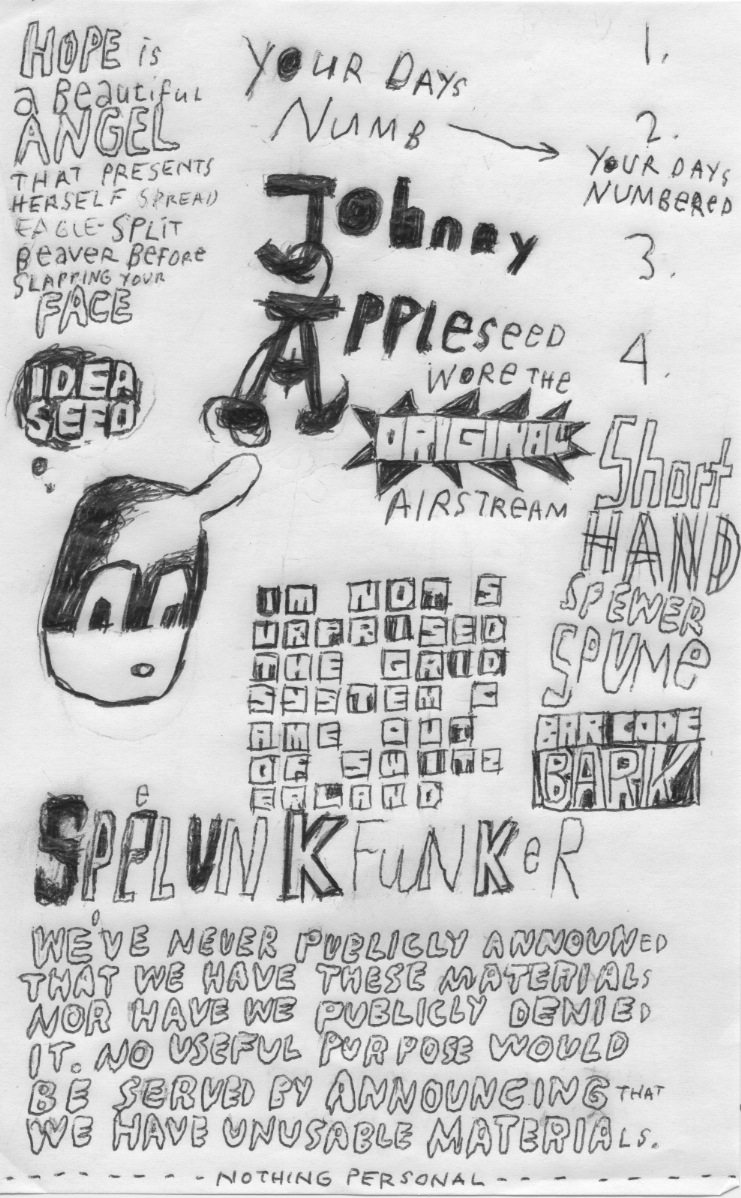 HOPE is
a Beautiful
ANGEL
THAT PRESENTS
HERSELF SPREAD
EAGLE-SPLIT
BEAVER BEFORE
SLAPPING YOUR
FACE
YOUR DAYS
NUMB
1.
2.
YOUR DAYS
NUMBERED
3.
4.
Johnny
APPLeseeD
WORE THE
ORIGINAL
AIRSTREAM
IDEA
SEED
Short
HAND
SPEWER
SPUMe
IM NOT S
URPRISED
THE GRID
SYSTEM C
AME OUT
OF SWITZ
ERLAND
BAR CODE
BARK
SPELUNKFUNKeR
WE'VE NEVER PUBLICLY ANNOUNED
THAT WE HAVE THESE MATERIALS
NOR HAVE WE PUBLICLY DENIED
IT. NO USEFUL PURPOSE WOULD
BE SERVED BY ANNOUNCING THAT
WE HAVE UNUSABLE MATERIALS.
- - - - - - - - NOTHING PERSONAL - - - - - - - -